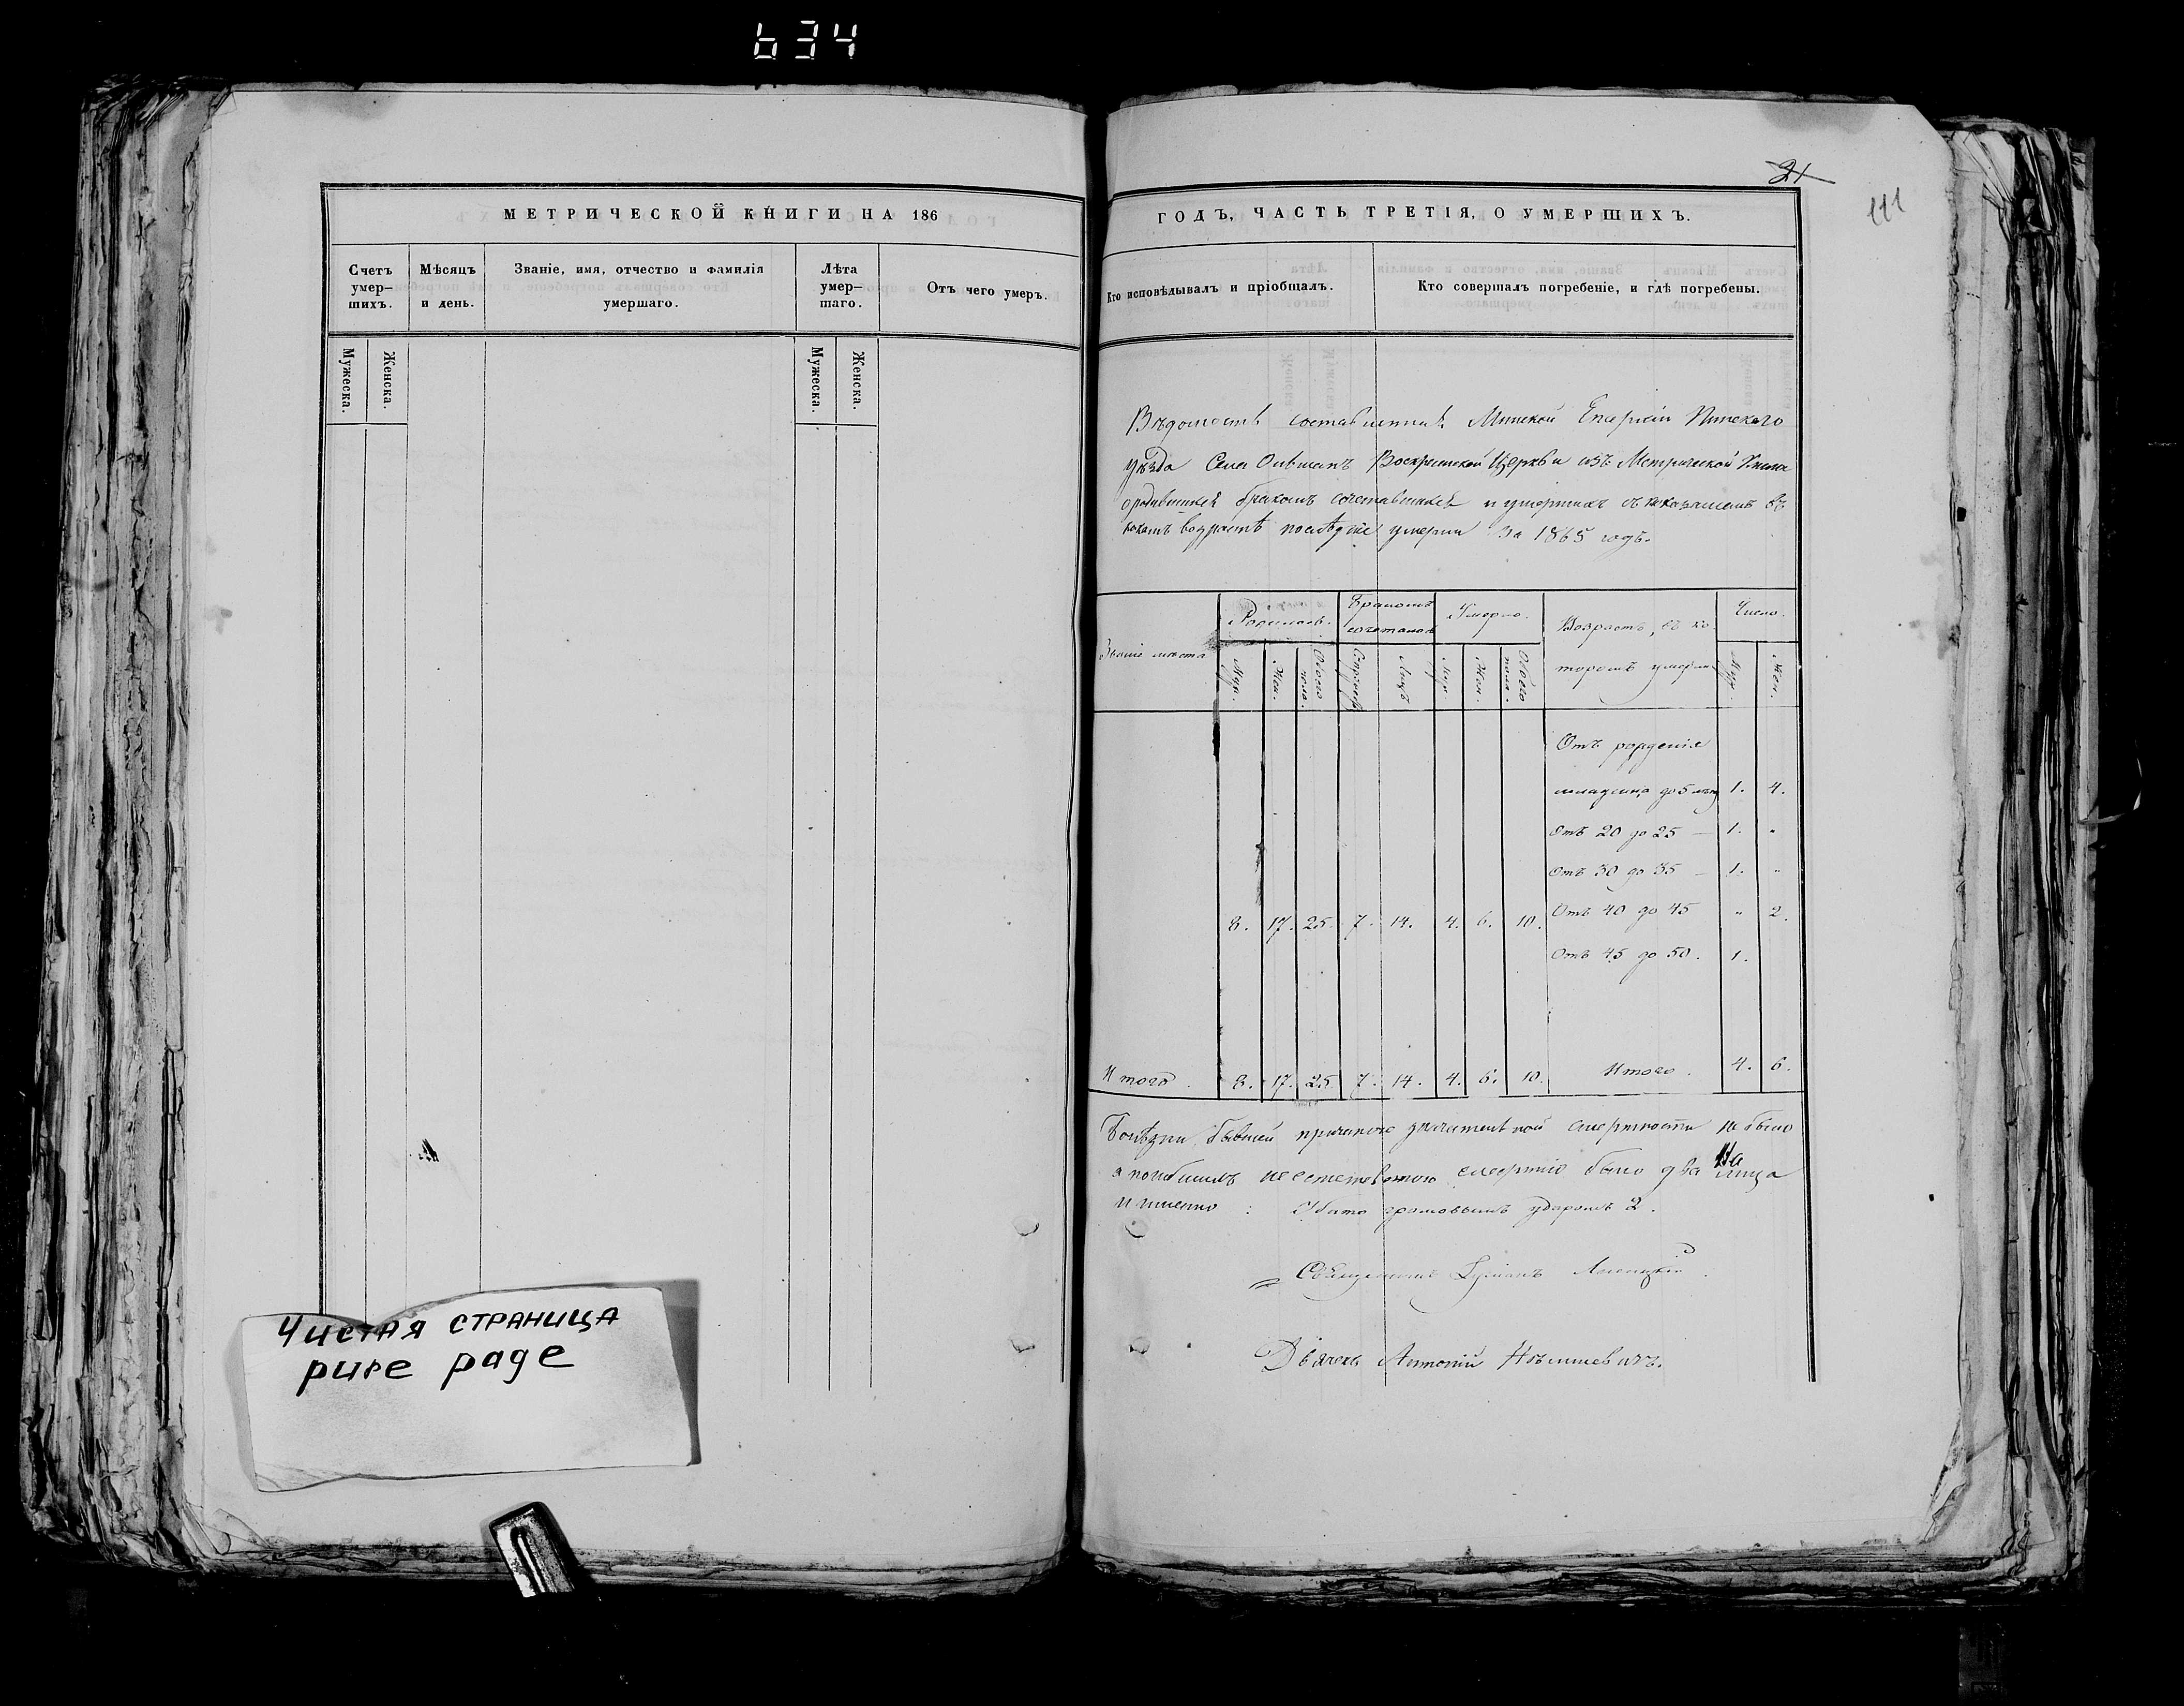 634
МЕТРИЧЕСКОЙ КНИГИ НА 186
Счетъ умер-шихъ.
Мѣсяцъ и день.
Званіе, имя, отчество и фамилія умершаго.
Лѣта умер-шаго.
Отъ чего умеръ.
Мужеска.
Женска.
Мужеска.
Женска.
Чистая страница
pure page
21
111
ГОДЪ, ЧАСТЬ ТРЕТІЯ, О УМЕРШИХЪ.
Кто исповѣдывалъ и пріобщалъ.
Кто совершалъ погребеніе, и гдѣ погребены.
Вѣдомость составленная Минской Епархіи Пинскаго
уѣзда Села Ольшанъ Воскресенской Церкви изъ Метрической Книги
о родившихся бракомъ сочетавшихся и умершихъ съ показаніемъ въ
какомъ возрастѣ послѣдніе умерли За 1865 годъ.
Званіе мѣста
Родилось.
Бракомъ сочеталось
Умерло.
Возрастъ, въ ко
торомъ умерли
Число.
Муж.
Жен.
Обоего пола.
Супруж
Лицъ
Муж.
Жен.
Обоего пола.
Муж.
Жен.
Отъ рожденія
младенца до 5 лѣтъ 1. 4.
Отъ 20 до 25 — 1. "
Отъ 30 до 35 — 1. "
8. 17. 25. 7. 14. 4. 6. 10. Отъ 40 до 45 " 2.
Отъ 45 до 50. 1.
Итого. 8. 17. 25 7. 14. 4. 6. 10. Итого. 4. 6.
Болѣзни бывшей причиною значительной смертности не было
а погибшихъ неестественною смертію было два лица
именно: Убито громовымъ ударомъ 2.
Священникъ
Дьячекъ Антоній